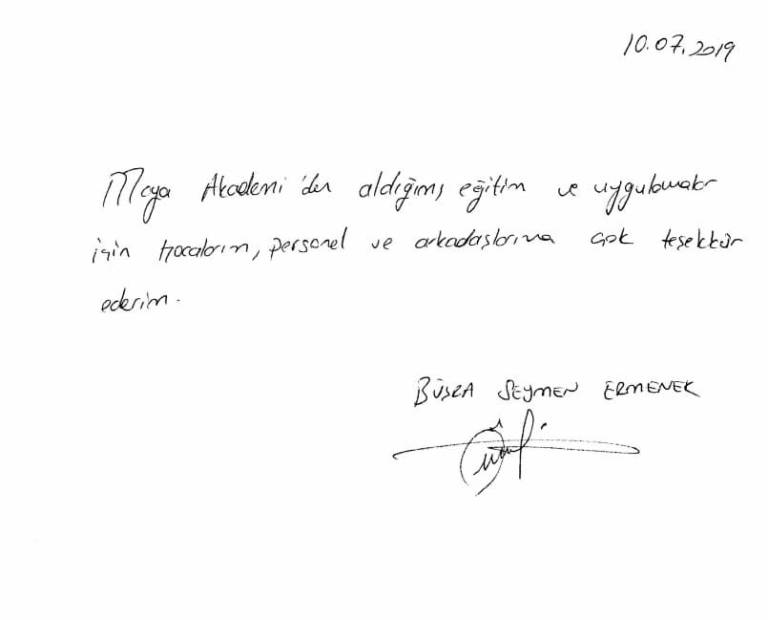 10.07.2019
Maya Akademi'den aldığımız eğitim ve uygulamalar
için hocalarım, personel ve arkadaşlarıma çok teşekkür
ederim.
BÜŞRA SEYMEN ERMENEK